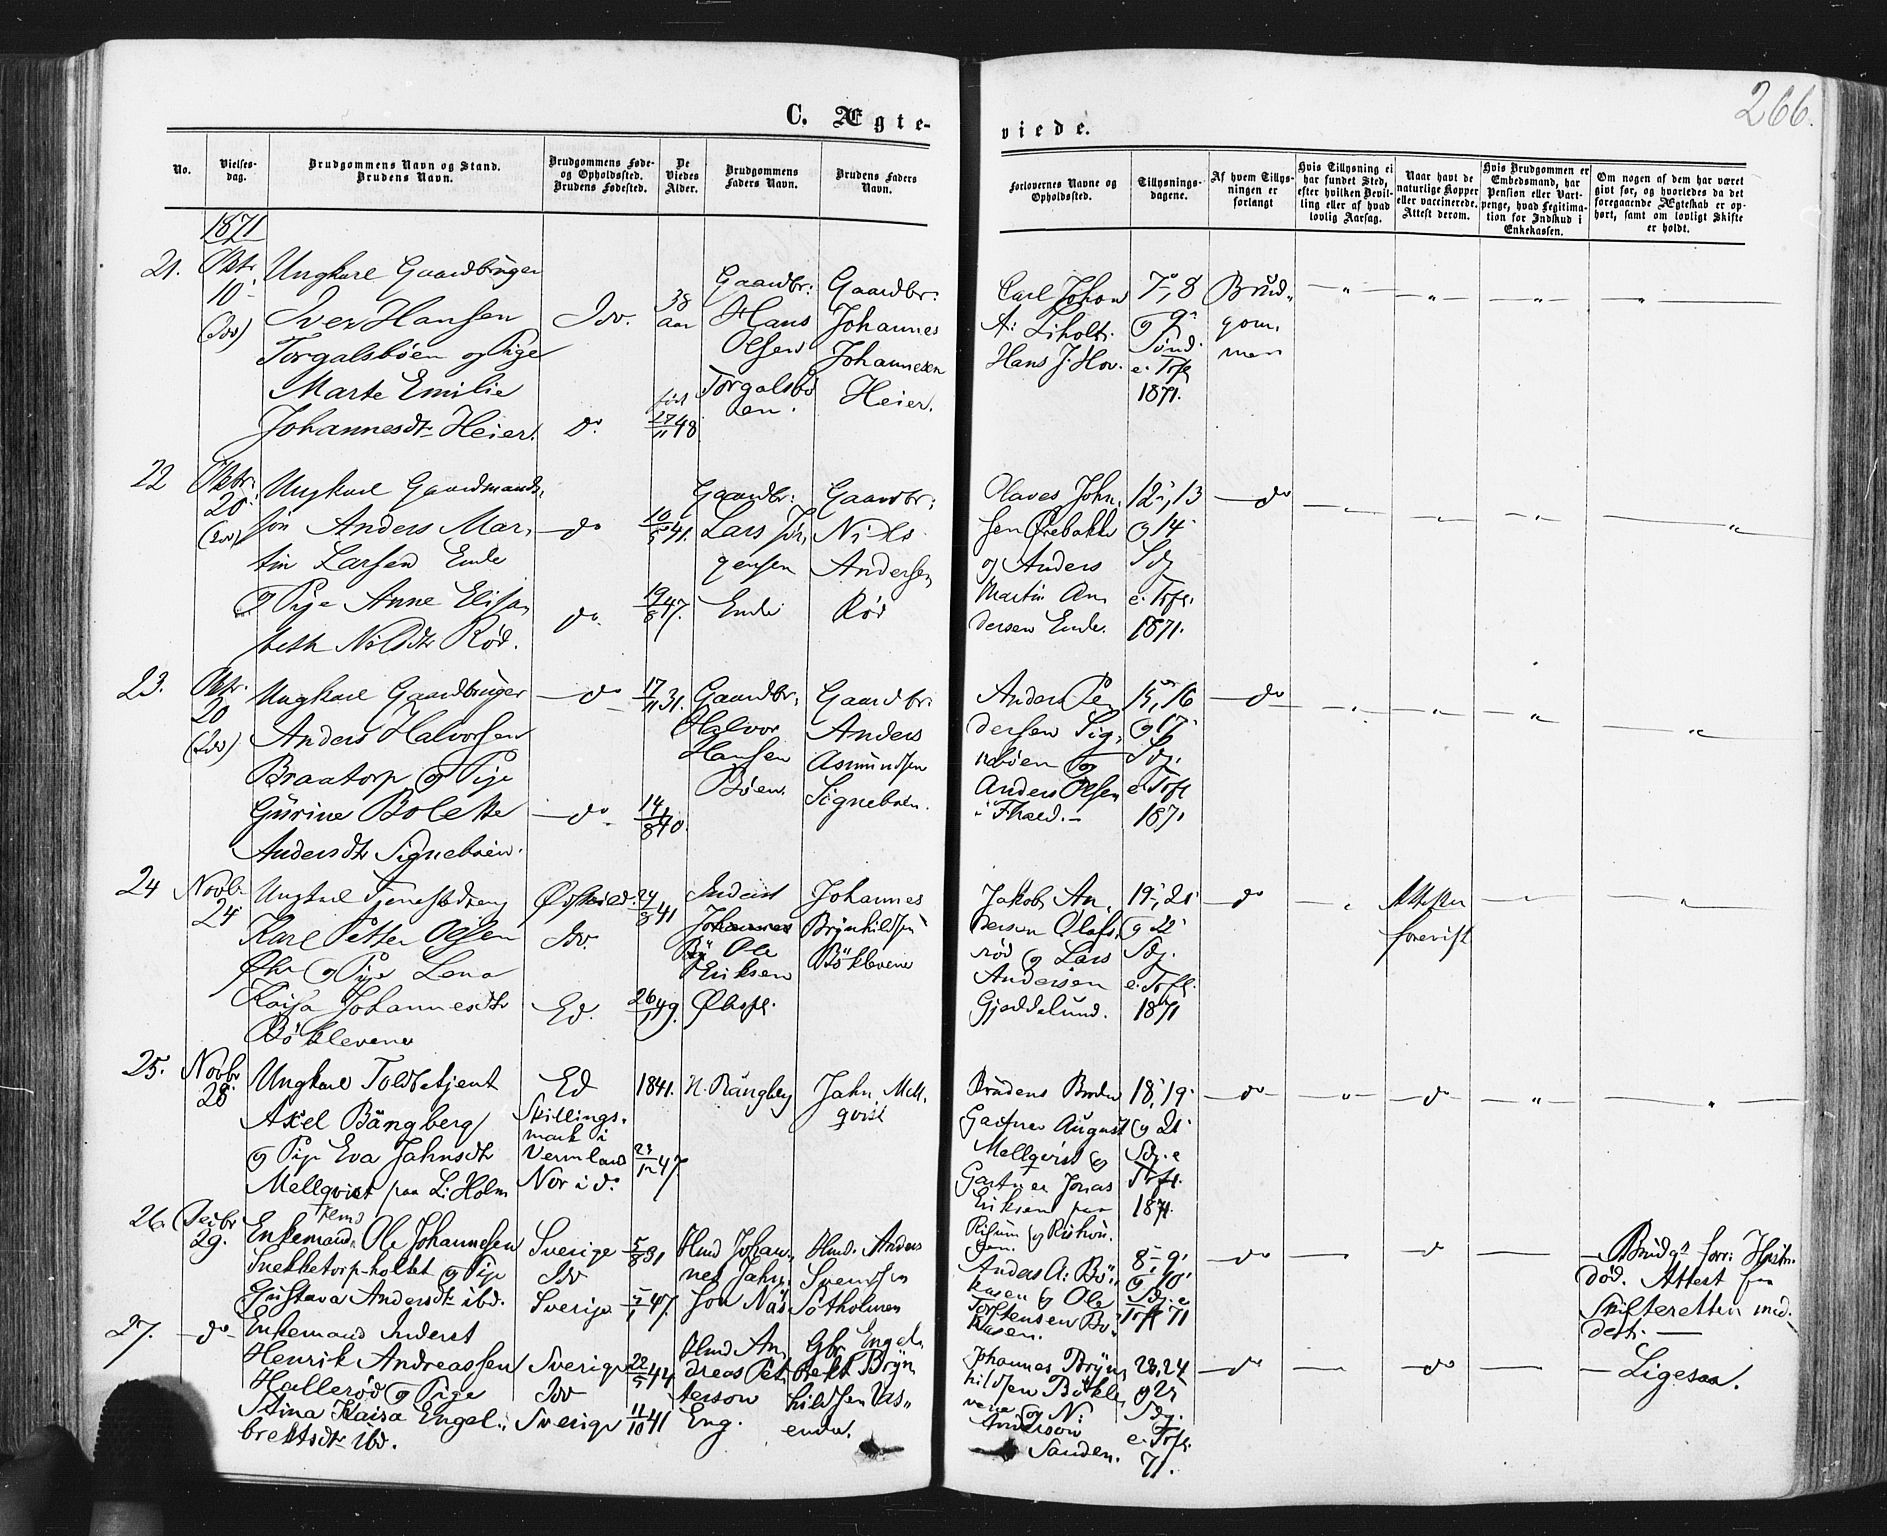 C. Ægte-
viede.
266.
No.
Vielses-
dag.
Brudgommens Navn og Stand.
Brudens Navn.
Brudgommens Føde-
og Opholdssted.
Brudens Fødested.
De
Viedes
Alder.
Brudgommens
Faders Navn.
Brudens Faders
Navn.
Forlovernes Navne og
Opholdssted.
Tillysnings-
dagene.
Af hvem Tillys-
ningen er
forlangt
Hvis Tillysning ei
har fundet Sted,
efter hvilken Bevil-
ling eller af hvad
lovlig Aarsag.
Naar havt de
naturlige Kopper
eller vaccinerede.
Attest derom.
Hvis Brudgommen er
Embedsmand, har
Pension eller Vart-
penge, hvad Legitima-
tion for Indskud i
Enkekassen.
Om nogen af dem har været
givt før, og hvorledes da det
foregaaende Ægteskab er op-
hørt, samt om lovligt Skifte
er holdt.
1871
21.
Oktr
10
(Idv)
Ungkarl Gaardbruger
Iver Hansen
Torgalsbøen og Pige
Marte Emilie
Johannesdtr Heier.
Idv.
do
38
aar
født
27/11 48
Gaardbr:
Hans
Olsen
Torgalsbø
en.
Gaardbr:
Johannes
Johannesen
Heier.
Carl Johan
A: Liholt.
Hans J: Hov.
7, 8
og 9
Sønd.
e. Trft
1871.
Brud-
gom-
men
22
Oktbr.
20
(Idv)
Ungkarl Gaardmands-
søn Anders Mar-
tin Larsen Ende
og Pige Anne Elisa-
beth Nilsdtr Rød.
do
do
10/5 41.
19/8 47.
Gaardbr:
Lars Jør-
gensen
Ende
Gaardbr:
Nils
Andersen
Rød
Olaves John-
sen Ørebakke
og Anders
Martin An-
dersen Ende.
12, 13
og 14
Sdg
e. Trft.
1871.
do
23.
Oktr.
20
(Idv)
Ungkarl Gaardbruger
Anders Halvorsen
Braatorp og Pige
Gurine Bolette
Andersdtr Signebøen.
do
do
17/11 31.
14/8 40.
Gaardbr:
Halvor
Hansen
Bøen.
Gaardbr:
Anders
Asmundsen
Signebøen.
Anders Pe-
dersen Sig-
nebøen og
Anders Olsen
i Fhald.
15, 16
og 17
Sdg.
e. Trft
1871
do
24
Novb.
24
Ungkarl Tjenestedreng
Karl Petter Olsen
og Pige Lena
Kaisa Johannesdtr
Böklevene
Idv.
Ed.
24/8 41
26/1 49.
Inderst
Johannes
Ole
Eriksen
Johannes
Brynhildsen
Böklevene
Jakob An-
dersen Olafs-
rød og Lars
Andersen
Gjeddelund.
19, 21
og 22
Sdg.
e. Trft.
1871
do
Attester
forevist
25.
Novbr
28
Ungkarl Toldbetjent
Axel Bångberg
og Pige Eva Jahnsdtr
Mellqvist paa L: Holm
Ed
Skillings-
mark i
Vermland
Nor i do
1841.
23/12 47
N. Bångberg
Jahn Mell-
qvist
Brudens Broder
Gartner August
Mellqvist og
Gartner Jonas
Eriksen paa
18, 19
og 21
Sdg. e
Trft.
1871.
do
do
26.
Decbr
29.
Enkemand Hmd Ole Johannesen
Snekketorp-holtet og Pige
Gustava Andersdtr ibd.
Sverige
Idv
Sverige
5/8 31
5/1 47.
Hmd Johan-
nes Jahn-
son Näs
Hmd. Anders
Svendsen
Sotholmen
Anders A: Bö-
kasen og Ole
Torstensen Bö-
kasen.
8, 9
og 10
Sdg. e
Trft 71
do
do
Brudgs forr: Hustru
død. Attest fra
Skifteretten med-
delt.
27.
do
Enkemand Inderst
Henrik Andreassen
Hallerød og Pige
Stina Kaisa Engel-
brektsdtr ibd.
Sverige
Idv
Sverige
22/5 44
11/10 41
Hmd An-
dreas Pet-
terson
Eng.
Gbr Engel-
brekt Bryn-
hildsen Vas-
enda.
Johannes Bryn-
hildsen Bökle-
vene og N:
Anderson
Sanden.
23, 24
og 25
Sdg.
e. Trft.
71.
do
do
Ligesaa.